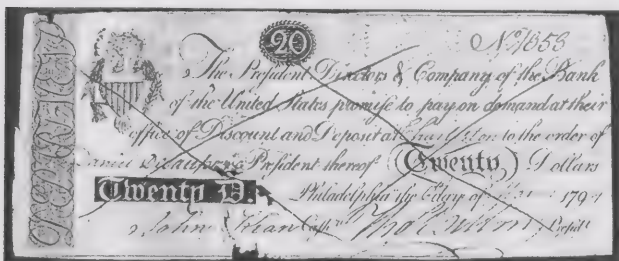 20
No. 1053
The President Directors & Company of the Bank
of the United States promise to pay on demand at their
office of Discount and Deposit at to the order of
President thereof (Twenty) Dollars
Twenty D. Philadelphia the day of 179
John Kean Cashr. Presidt.